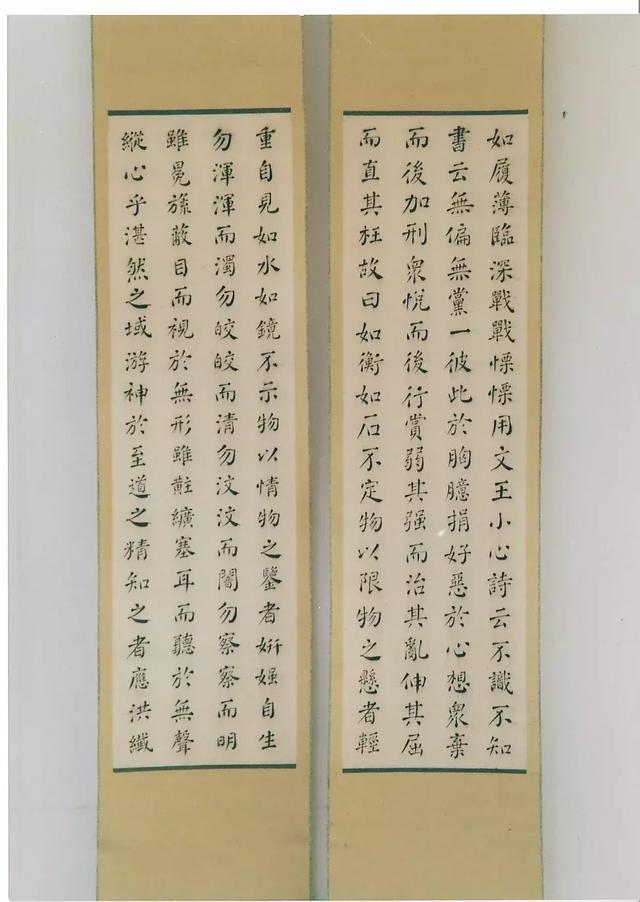 如履薄臨深戰戰慄慄用文王小心詩云不識不知
書云無偏無黨一彼此於胸臆捐好惡於心想衆棄
而後加刑衆悅而後行賞弱其强而治其亂伸其屈
而直其枉故曰如衡如石不定物以限物之懸者輕
重自見如水如鏡不示物以情物之鑒者妍媸自生
勿渾渾而濁勿皎皎而清勿汶汶而闇勿察察而明
雖冕旒蔽目而視於無形雖黈纊塞耳而聽於無聲
縱心乎湛然之域游神於至道之精知之者應洪纖